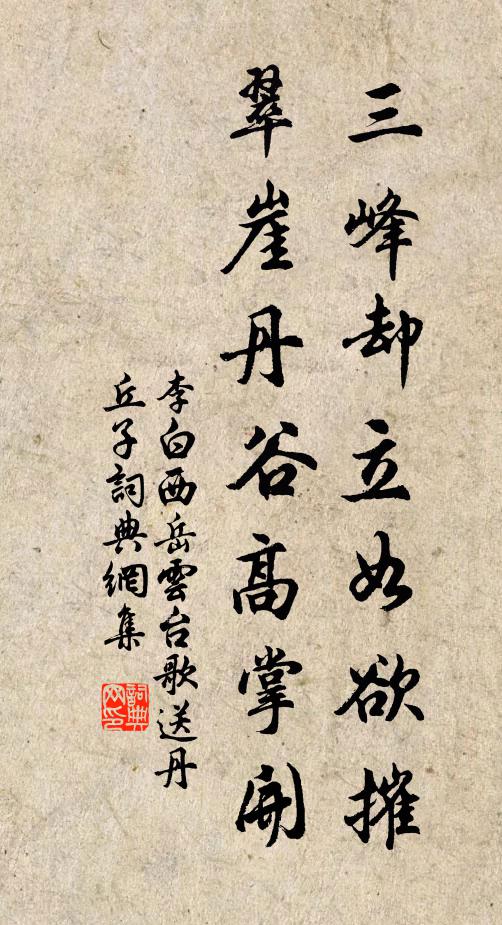 三峰却立如欲摧
翠崖丹谷高掌開
李白西岳雲台歌送丹
丘子詞典網集
詞典网印